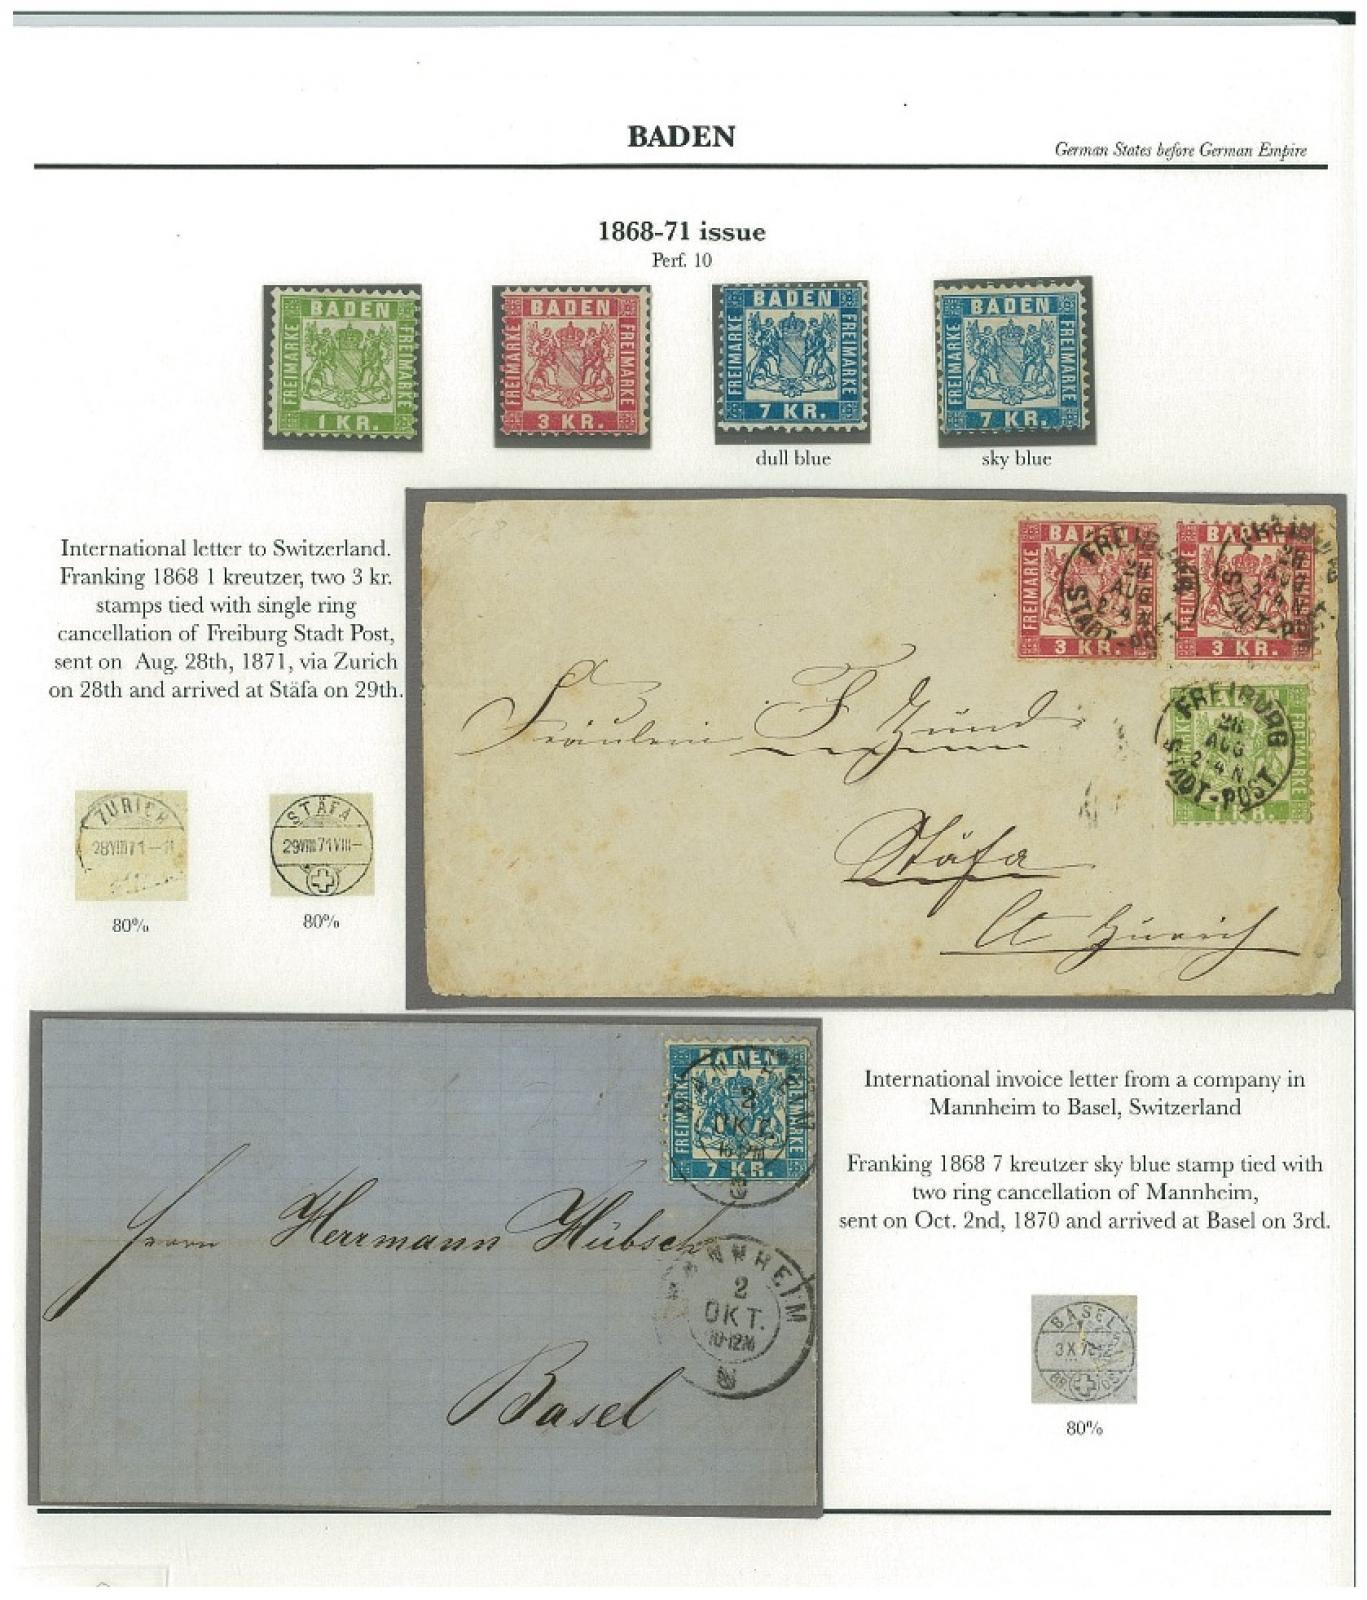 BADEN
German States before German Empire
1868-71 issue
Perf. 10
BADEN
FREIMARKE
FREIMARKE
1 KR.
BADEN
FREIMARKE
FREIMARKE
3 KR.
BADEN
FREIMARKE
FREIMARKE
7 KR.
BADEN
FREIMARKE
FREIMARKE
7 KR.
dull blue
sky blue
International letter to Switzerland.
Franking 1868 1 kreutzer, two 3 kr.
stamps tied with single ring
cancellation of Freiburg Stadt Post,
sent on Aug. 28th, 1871, via Zurich
on 28th and arrived at Stäfa on 29th.
ZURICH
28VIII71
80%
STÄFA
29VIII71VIII-
80%
BADEN
FREIMARKE
3 KR.
28
AUG
2-4 N
STADT-POST
BADEN
FREIMARKE
3 KR.
AUG
2-4 N
FREIBURG
28
AUG
2-4 N
STADT-POST
FREIMARKE
1 KR.
Fräulein F. Zünd
Stäfa
Ct Zürich
BADEN
FREIMARKE
7 KR.
2
OKT.
MANNHEIM
2
OKT.
10-12M
Herrn Herrmann Hübsch
Basel
International invoice letter from a company in
Mannheim to Basel, Switzerland
Franking 1868 7 kreutzer sky blue stamp tied with
two ring cancellation of Mannheim,
sent on Oct. 2nd, 1870 and arrived at Basel on 3rd.
BASEL
3 X 70
80%